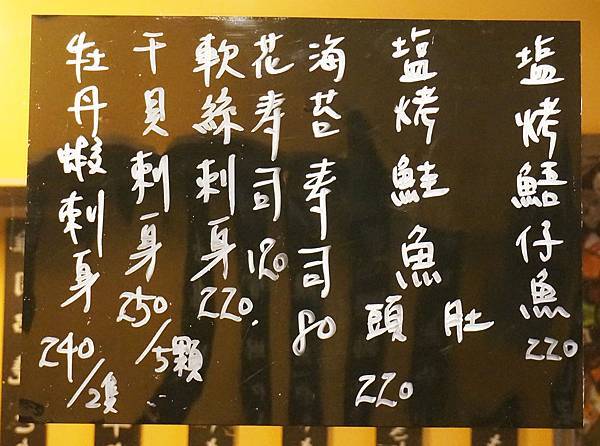 塩烤鯃仔魚 220
塩烤鮭魚 頭 肚 220
海苔寿司 80
花寿司 120
軟絲刺身 220.
干貝刺身 250/5顆
牡丹蝦刺身 240/2隻